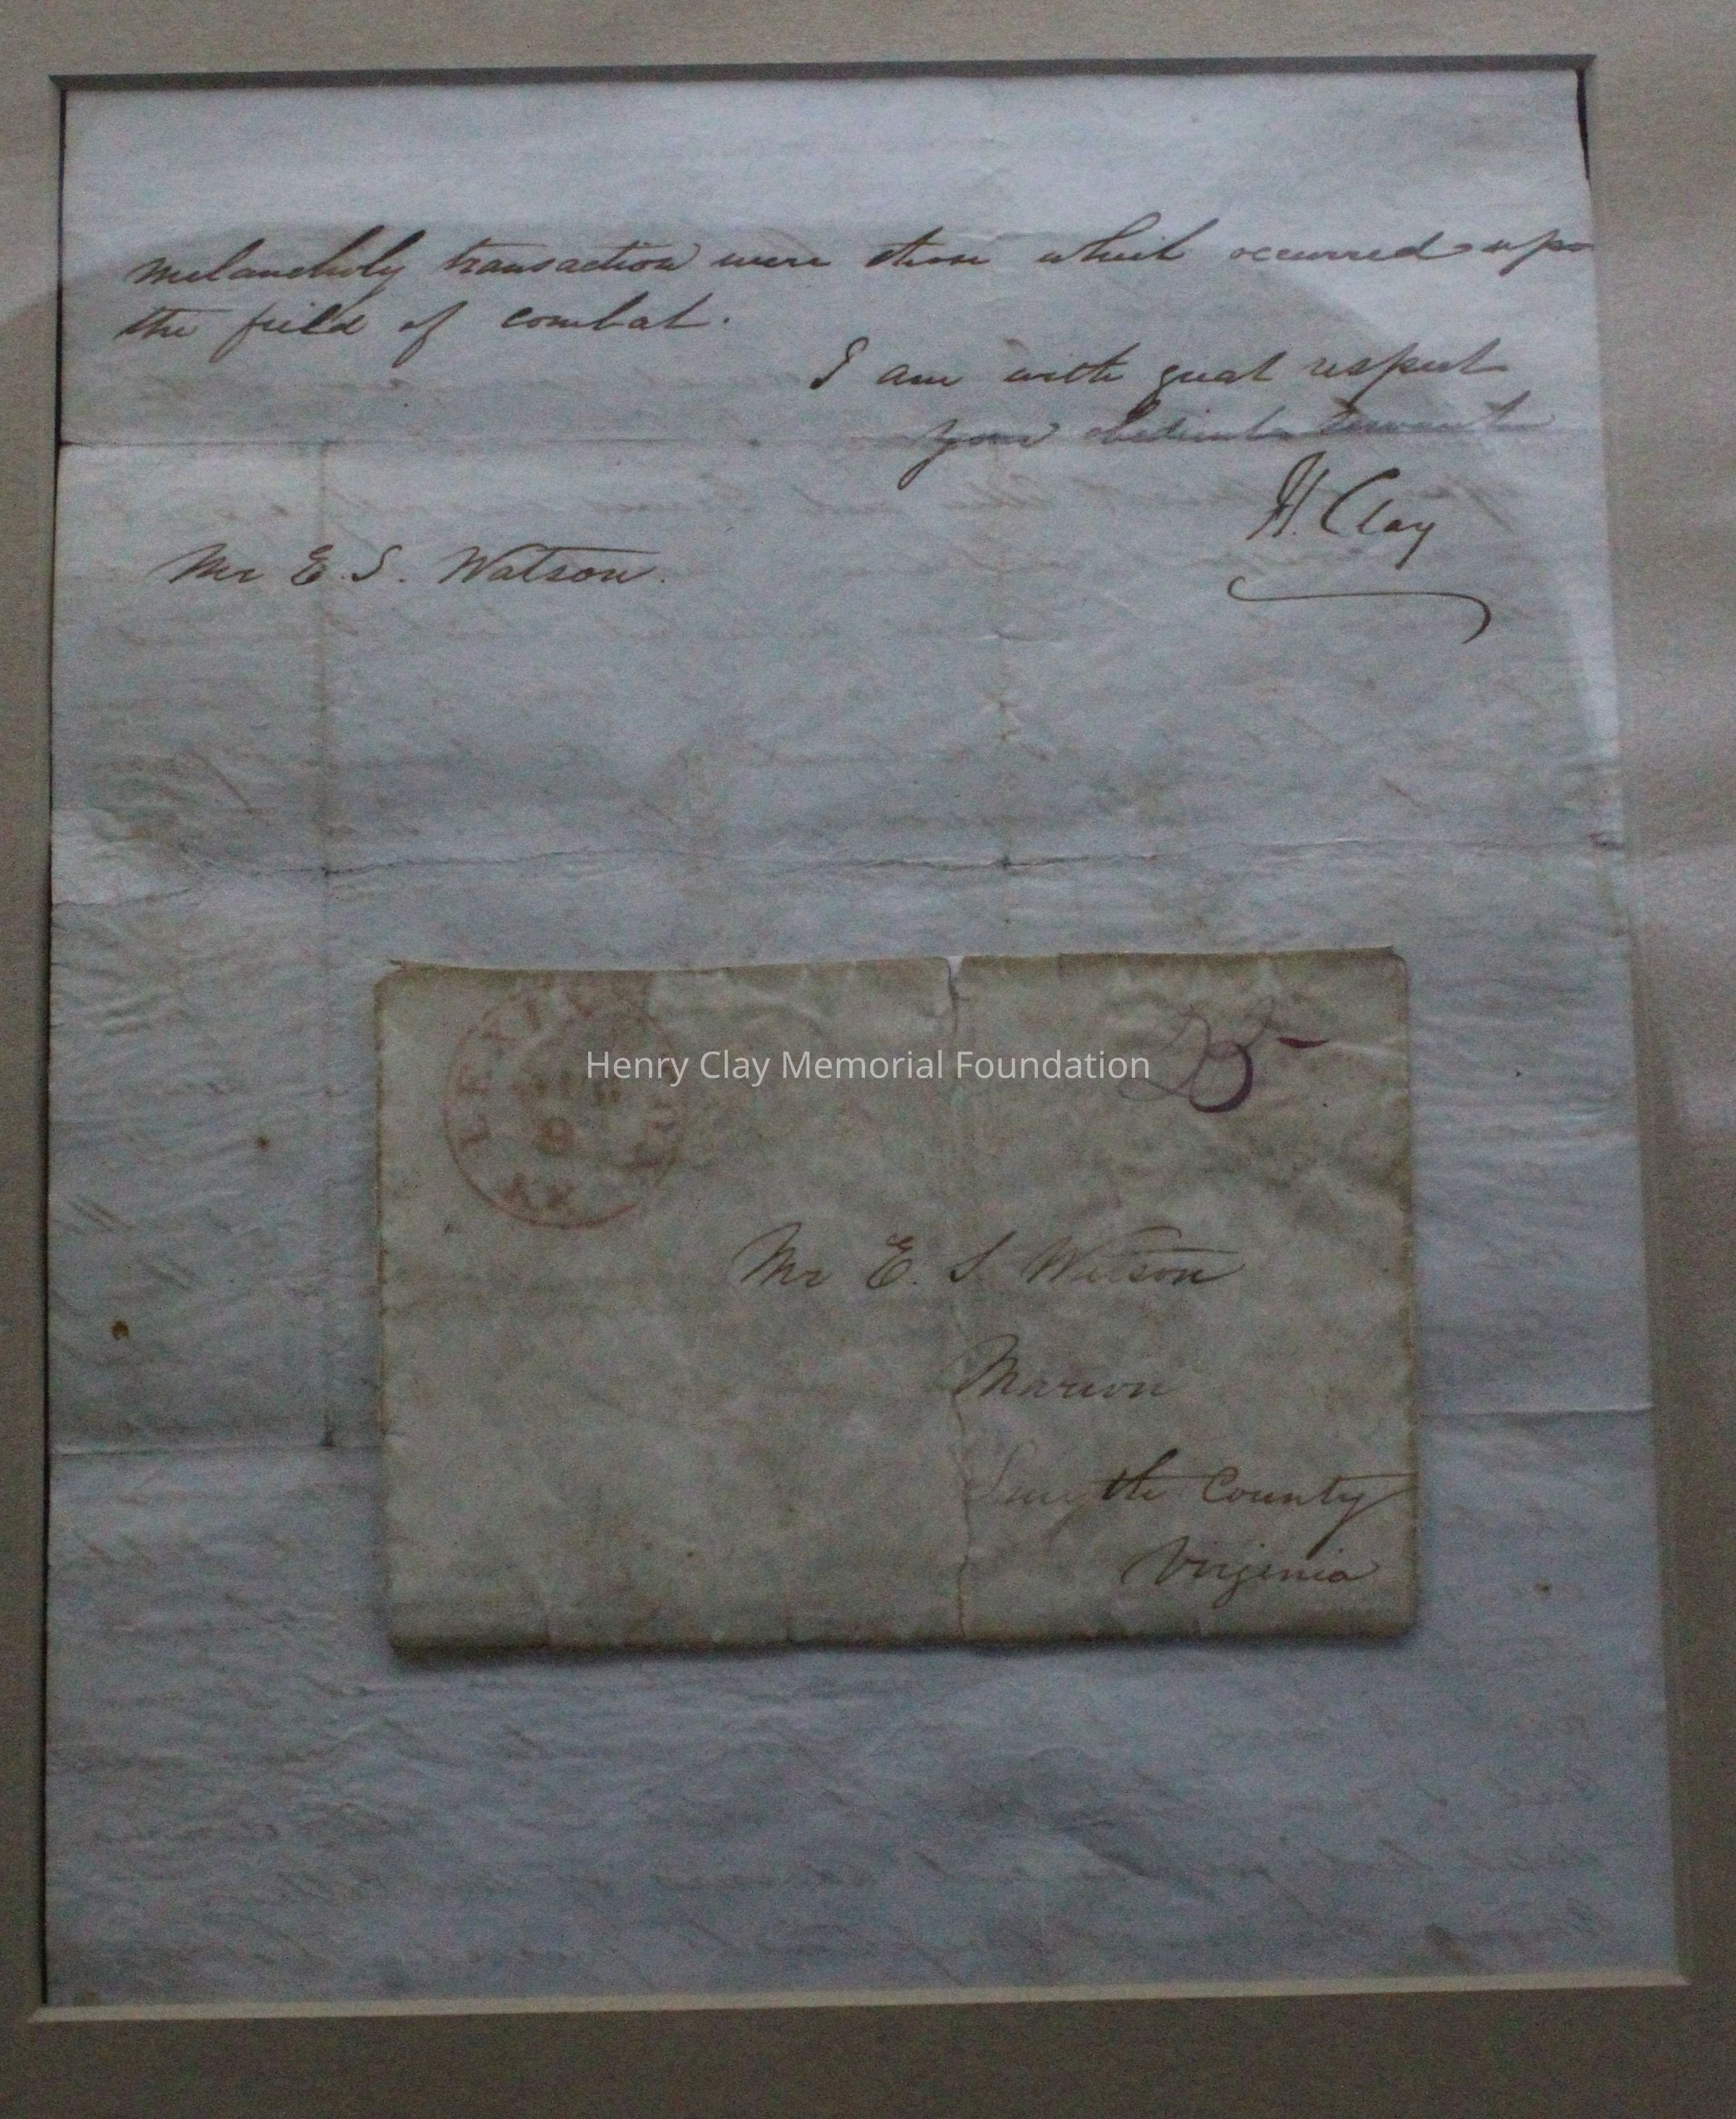 melancholy transaction were those which occurred upo
the field of combat.
I am with great respect
Your obedient servant
H. Clay
Mr E. S. Watson.
Henry Clay Memorial Foundation
LEXIN
9
KY
25
Mr E. S Watson
Marion
Smythe County
Virginia